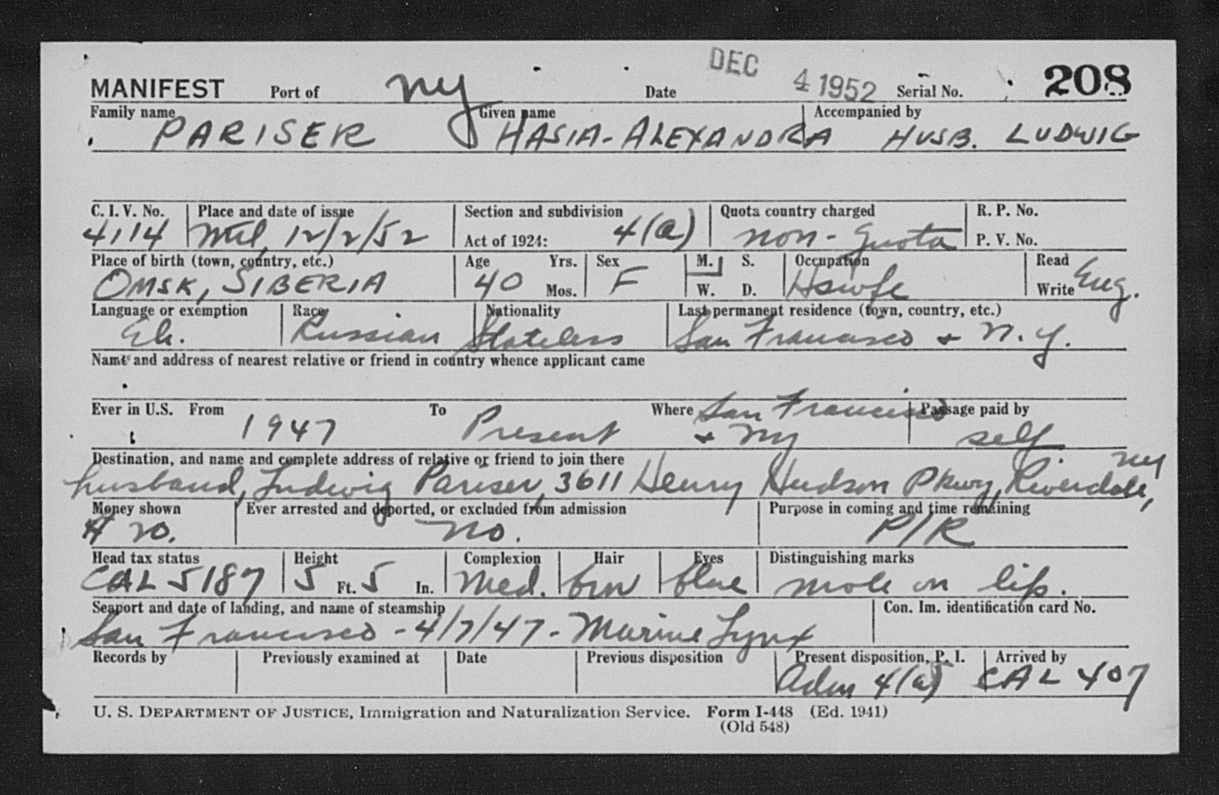 MANIFEST Port of ny Date DEC 4 1952 Serial No. 208
Family name Given name Accompanied by
PARISER HASIA-ALEXANDRA HUSB. LUDWIG
C. I. V. No. Place and date of issue Section and subdivision Quota country charged R. P. No.
4114 Mtl, 12/2/52 Act of 1924: 4(a) non-quota P. V. No.
Place of birth (town, country, etc.) Age Yrs. Sex M. S. Occupation Read
OMSK, SIBERIA 40 Mos. F W. D. Hswfe Write Eng.
Language or exemption Race Nationality Last permanent residence (town, country, etc.)
Russian Stateless San Francisco + N.Y.
Name and address of nearest relative or friend in country whence applicant came
Ever in U.S. From To Where San Francisco Passage paid by
1947 Present + NY self
Destination, and name and complete address of relative or friend to join there
husband, Ludwig Pariser, 3611 Henry Hudson Pkwy, Riverdale, NY
Money shown Ever arrested and deported, or excluded from admission Purpose in coming and time remaining
no. P/R
Head tax status Height Complexion Hair Eyes Distinguishing marks
CAL 5187 5 Ft. 5 In. Med. brn blue mole on lip.
Seaport and date of landing, and name of steamship Con. Im. identification card No.
San Francisco - 4/7/47 - Marine Lynx
Records by Previously examined at Date Previous disposition Present disposition, P. I. Arrived by
Adm 4(a) CAL 407
U. S. DEPARTMENT OF JUSTICE, Immigration and Naturalization Service. Form I-448 (Ed. 1941)
(Old 548)